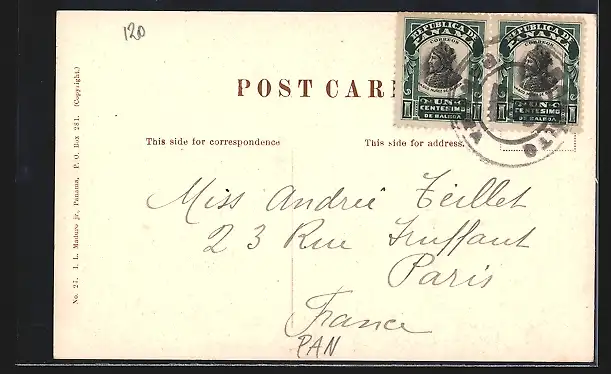 120
REPUBLICA DE PANAMA
CORREOS
1 UN CENTESIMO 1
DE BALBOA
REPUBLICA DE PANAMA
CORREOS
1 UN CENTESIMO 1
DE BALBOA
POST CAR
This side for correspondence
This side for address.
No. 27. I. L. Maduro jr., Panama, P. O. Box 281. (Copyright.)
Miss Andrée Teillet
23 Rue Truffaut
Paris
France
PAN